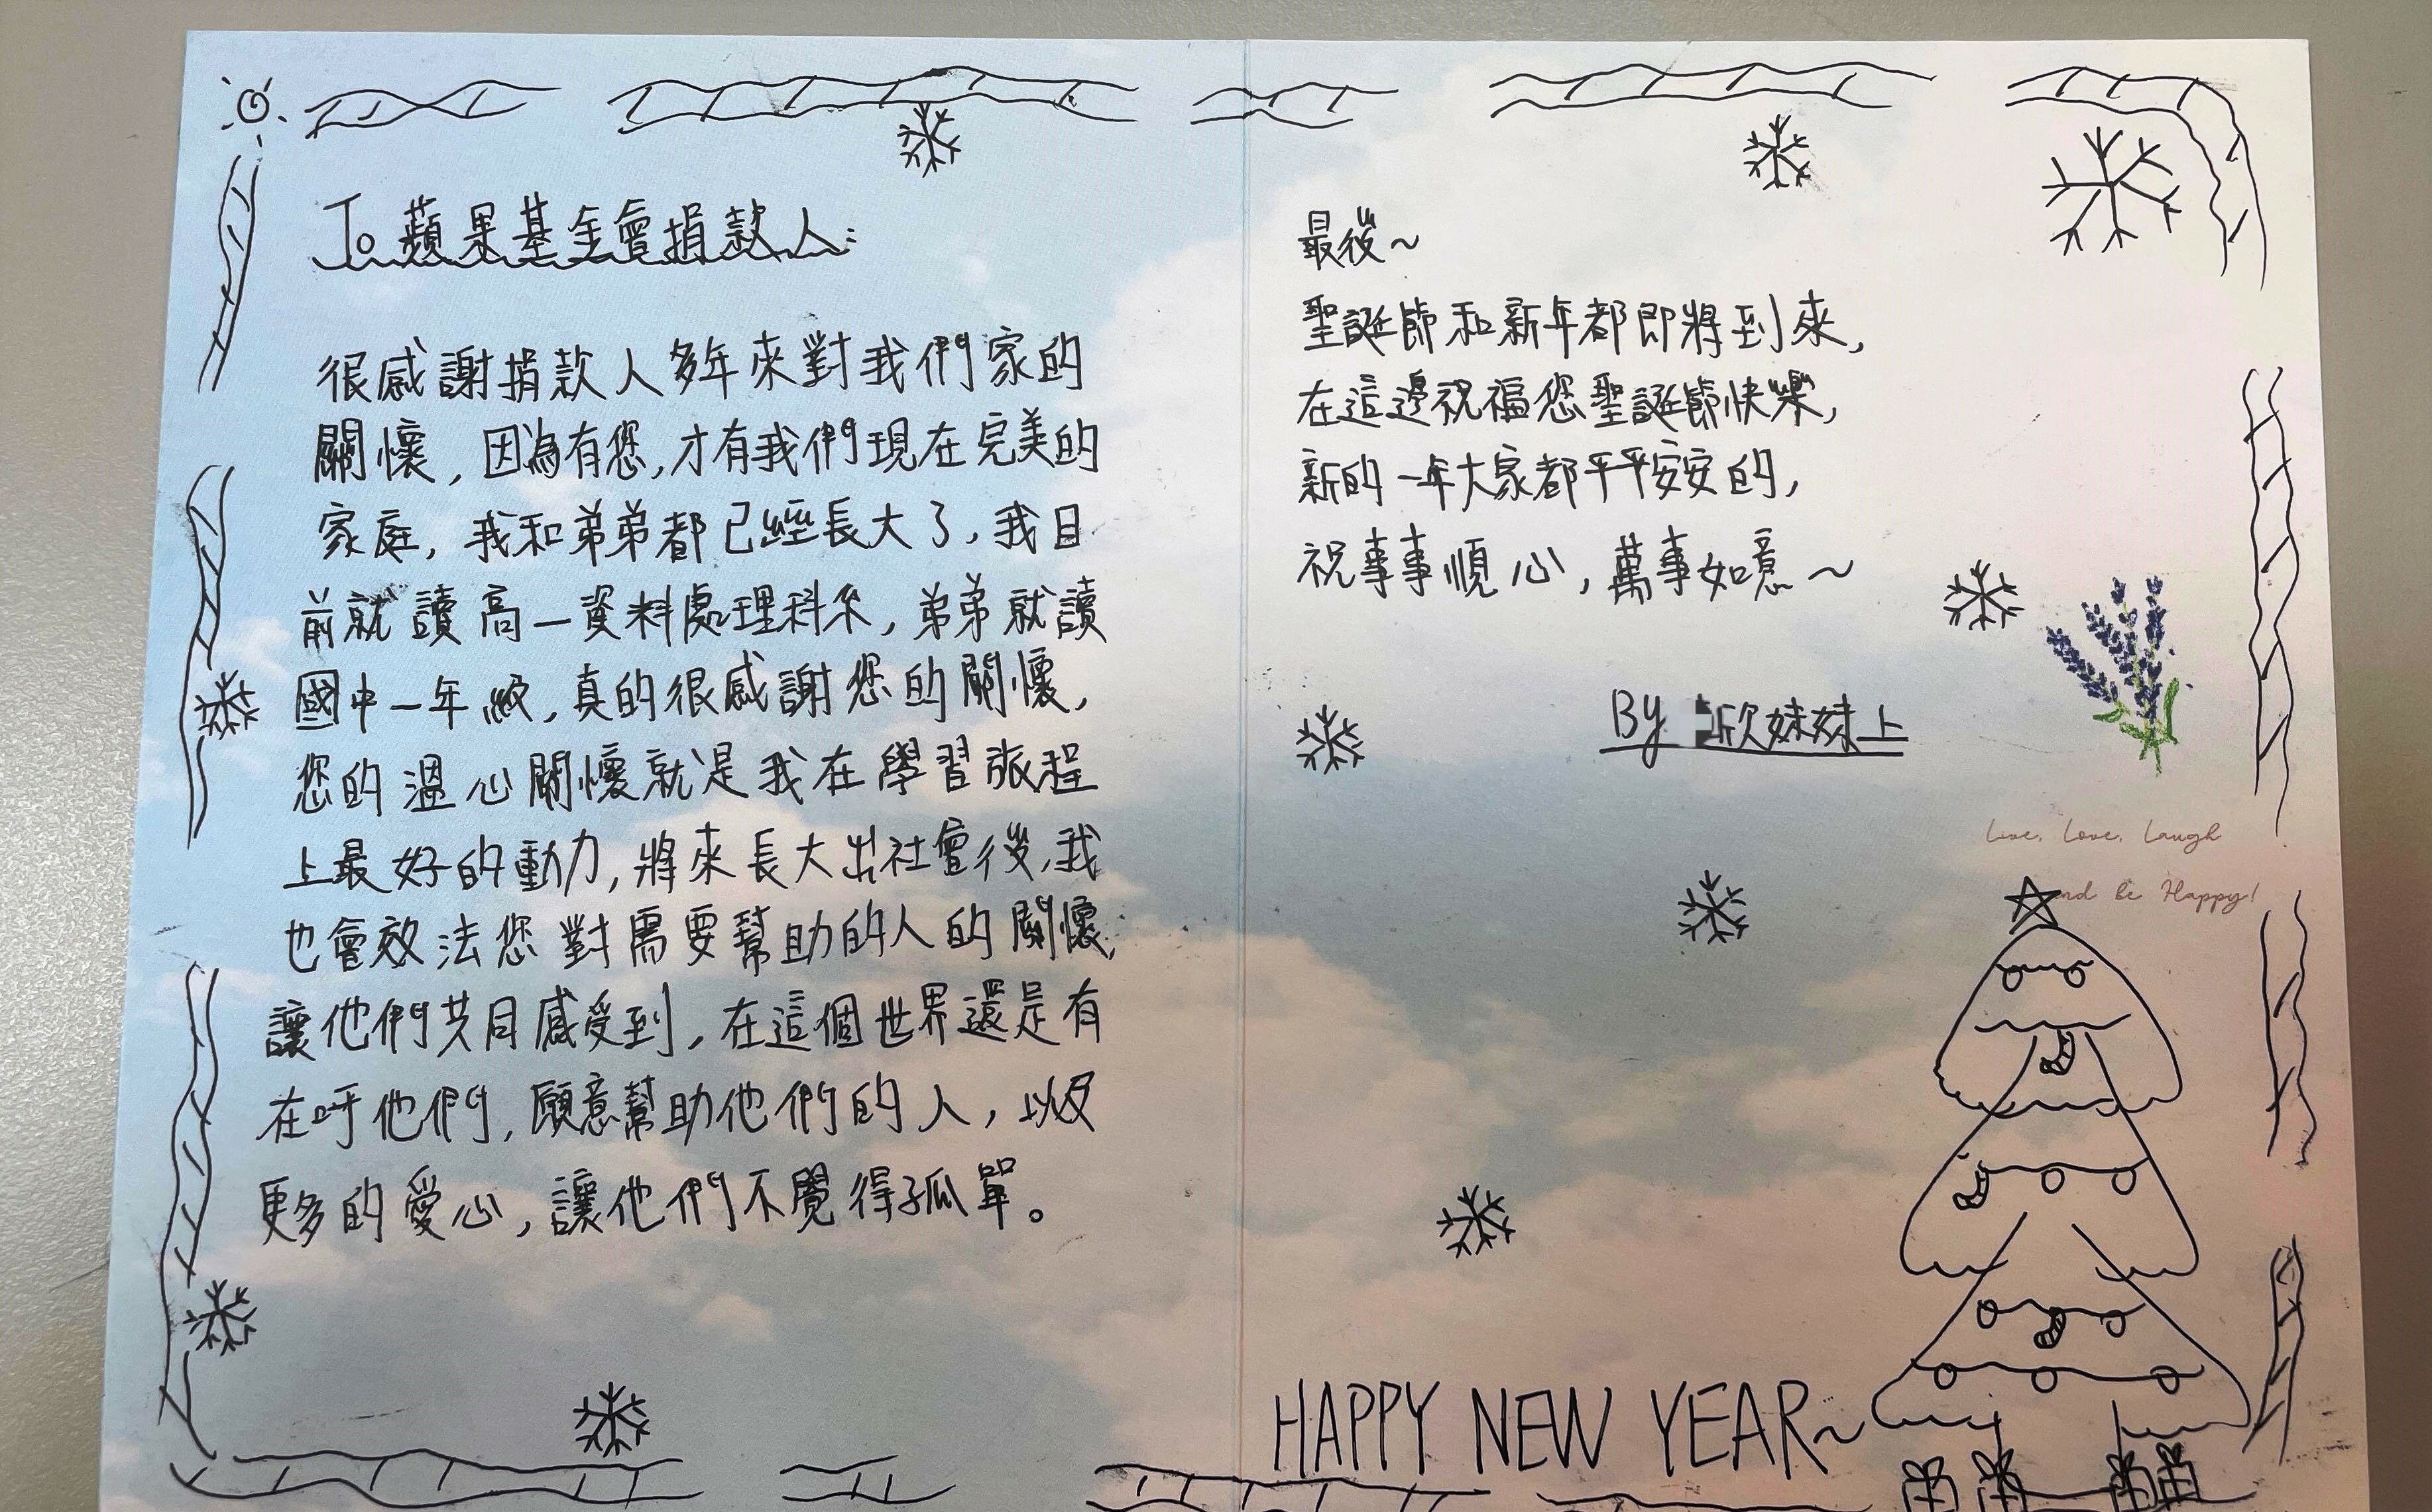 To 蘋果基金會捐款人:
很感謝捐款人多年來對我們家的
關懷,因為有您,才有我們現在完美的
家庭,我和弟弟都已經長大了,我目
前就讀高一資料處理科系,弟弟就讀
國中一年級,真的很感謝您的關懷,
您的溫心關懷就是我在學習旅程
上最好的動力,將來長大出社會後,我
也會效法您對需要幫助的人的關懷,
讓他們共同感受到,在這個世界還是有
在呼他們,願意幫助他們的人,以及
更多的愛心,讓他們不覺得孤單。
最後~
聖誕節和新年都即將到來,
在這邊祝福您聖誕節快樂,
新的一年大家都平平安安的,
祝事事順心,萬事如意~
By 欣妹妹上
Live, Love, Laugh
nd Be Happy!
HAPPY NEW YEAR~